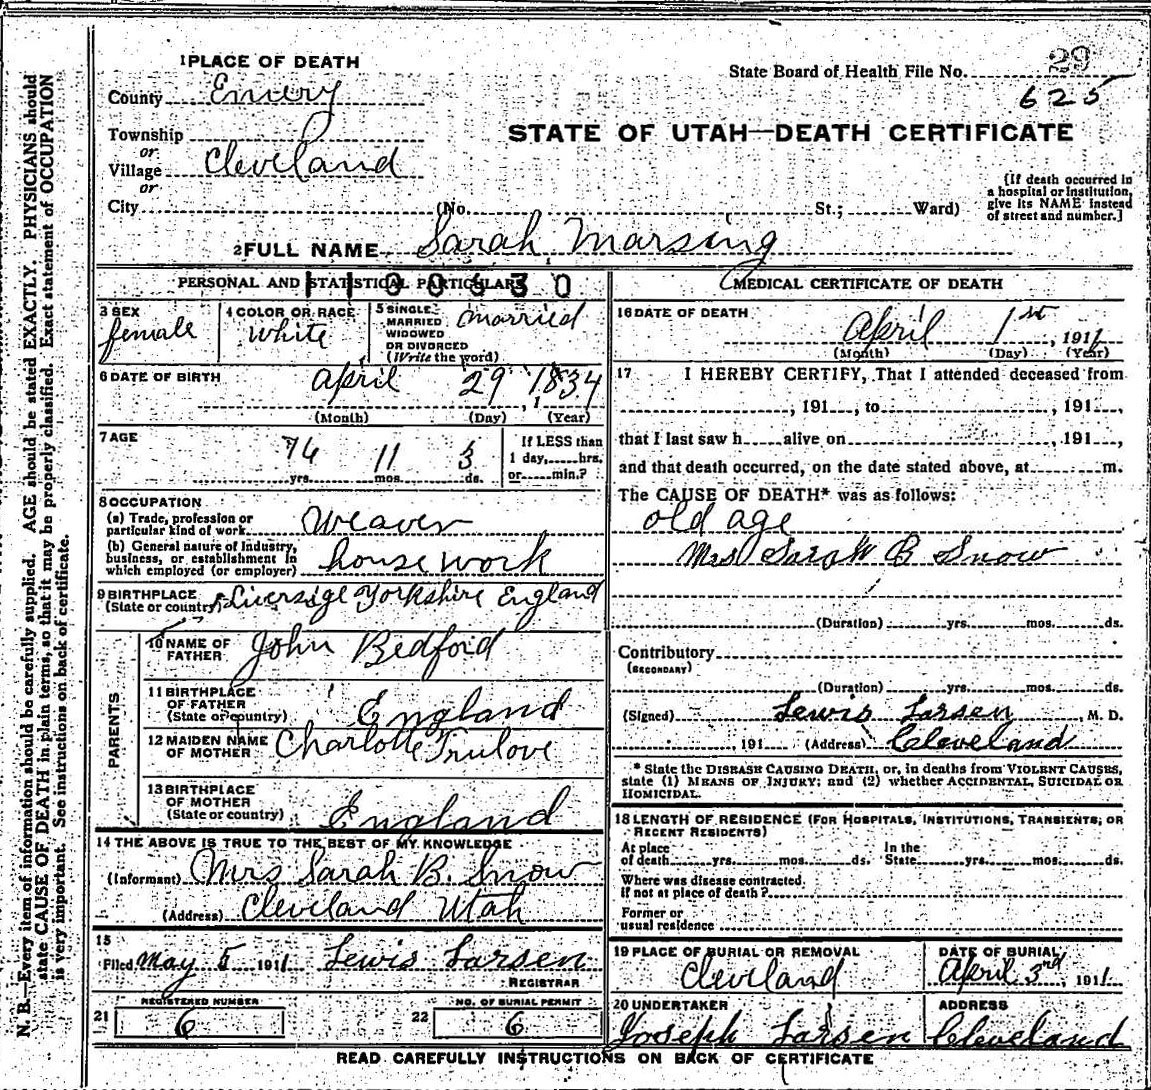 N. B.—Every item of information should be carefully supplied. AGE should be stated EXACTLY. PHYSICIANS should
state CAUSE OF DEATH in plain terms, so that it may be properly classified. Exact statement of OCCUPATION
is very important. See instructions on back of certificate.
1 PLACE OF DEATH
State Board of Health File No. 29
625
County Emery
STATE OF UTAH—DEATH CERTIFICATE
Township
or
Village Cleveland
or
[If death occurred in
a hospital or institution,
give its NAME instead
of street and number.]
City (No. St.; Ward)
2 FULL NAME Sarah Marsing
PERSONAL AND STATISTICAL PARTICULARS
1100630
MEDICAL CERTIFICATE OF DEATH
3 SEX
female
4 COLOR OR RACE
White
5 SINGLE
MARRIED
WIDOWED
OR DIVORCED
(Write the word)
married
6 DATE OF BIRTH
April 29, 1834
(Month) (Day) (Year)
7 AGE
76 yrs. 11 mos. 3 ds.
If LESS than
1 day, hrs.
or min.?
8 OCCUPATION
(a) Trade, profession or
particular kind of work Weaver
(b) General nature of industry,
business, or establishment in
which employed (or employer) house work
9 BIRTHPLACE
(State or country) Liversige Yorkshire England
PARENTS
10 NAME OF
FATHER John Bedford
11 BIRTHPLACE
OF FATHER
(State or country) England
12 MAIDEN NAME
OF MOTHER Charlotte Trulove
13 BIRTHPLACE
OF MOTHER
(State or country) England
14 THE ABOVE IS TRUE TO THE BEST OF MY KNOWLEDGE
(Informant) Mrs Sarah B. Snow
(Address) Cleveland Utah
15
Filed May 5 1911 Lewis Larsen
REGISTRAR
21 REGISTERED NUMBER
6
22 NO. OF BURIAL PERMIT
6
16 DATE OF DEATH
April 1st, 1911
(Month) (Day) (Year)
17 I HEREBY CERTIFY, That I attended deceased from
, 191 , to , 191 ,
that I last saw h alive on , 191 ,
and that death occurred, on the date stated above, at m.
The CAUSE OF DEATH* was as follows:
old age
Mrs Sarah B Snow
(Duration) yrs. mos. ds.
Contributory
(SECONDARY)
(Duration) yrs. mos. ds.
(Signed) Lewis Larsen, M. D.
191 (Address) Cleveland
* State the DISEASE CAUSING DEATH, or, in deaths from VIOLENT CAUSES,
state (1) MEANS OF INJURY; and (2) whether ACCIDENTAL, SUICIDAL OR
HOMICIDAL.
18 LENGTH OF RESIDENCE (FOR HOSPITALS, INSTITUTIONS, TRANSIENTS, OR
RECENT RESIDENTS)
At place
of death yrs. mos. ds.
In the
State yrs. mos. ds.
Where was disease contracted,
if not at place of death?
Former or
usual residence
19 PLACE OF BURIAL OR REMOVAL
Cleveland
DATE OF BURIAL
April 3rd, 1911
20 UNDERTAKER
Joseph Larsen
ADDRESS
Cleveland
READ CAREFULLY INSTRUCTIONS ON BACK OF CERTIFICATE